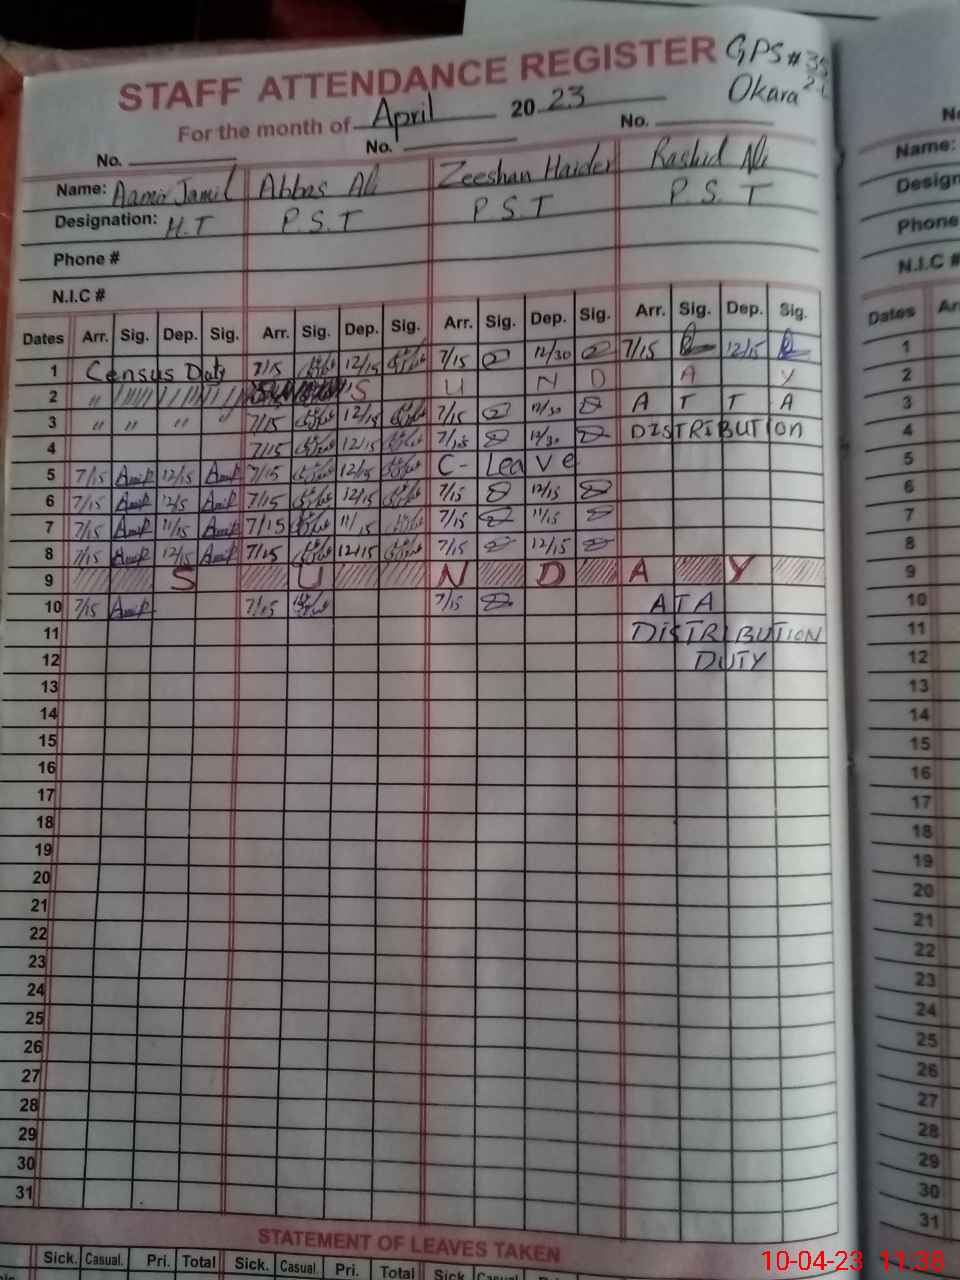 STAFF ATTENDANCE REGISTER GPS #
Okara
For the month of April 2023
No. No. No.
Name: Aamir Jamil Abbas Ali Zeeshan Haider Rashid Ali
Designation: H.T P.S.T P.S.T P.S.T
Phone #
N.I.C #
Dates Arr. Sig. Dep. Sig. Arr. Sig. Dep. Sig. Arr. Sig. Dep. Sig. Arr. Sig. Dep. Sig.
1 Census Duty 7/15 12/15 7/15 12/30 7/15 12/15
2 " S U N D A Y
3 " " " " 7/15 12/15 7/15 12/30 A T T A
4 7/15 12/15 7/15 12/30 DISTRIBUTION
5 7/15 Amir 12/15 Amir 7/15 12/15 C-Leave
6 7/15 Amir 12/15 Amir 7/15 12/15 7/15 12/15
7 7/15 Amir 11/15 Amir 7/15 11/15 7/15 11/15
8 7/15 Amir 12/15 Amir 7/15 12/15 7/15 12/15
9 S U N D A Y
10 7/15 Amir 7/15 7/15 ATA
11 DISTRIBUTION
12 DUTY
13
14
15
16
17
18
19
20
21
22
23
24
25
26
27
28
29
30
31
STATEMENT OF LEAVES TAKEN
Sick. Casual. Pri. Total Sick. Casual. Pri. Total Sick Casual
Name:
Design
Phone
N.I.C #
Dates
1
2
3
4
5
6
7
8
9
10
11
12
13
14
15
16
17
18
19
20
21
22
23
24
25
26
27
28
29
30
31
10-04-23 11:38